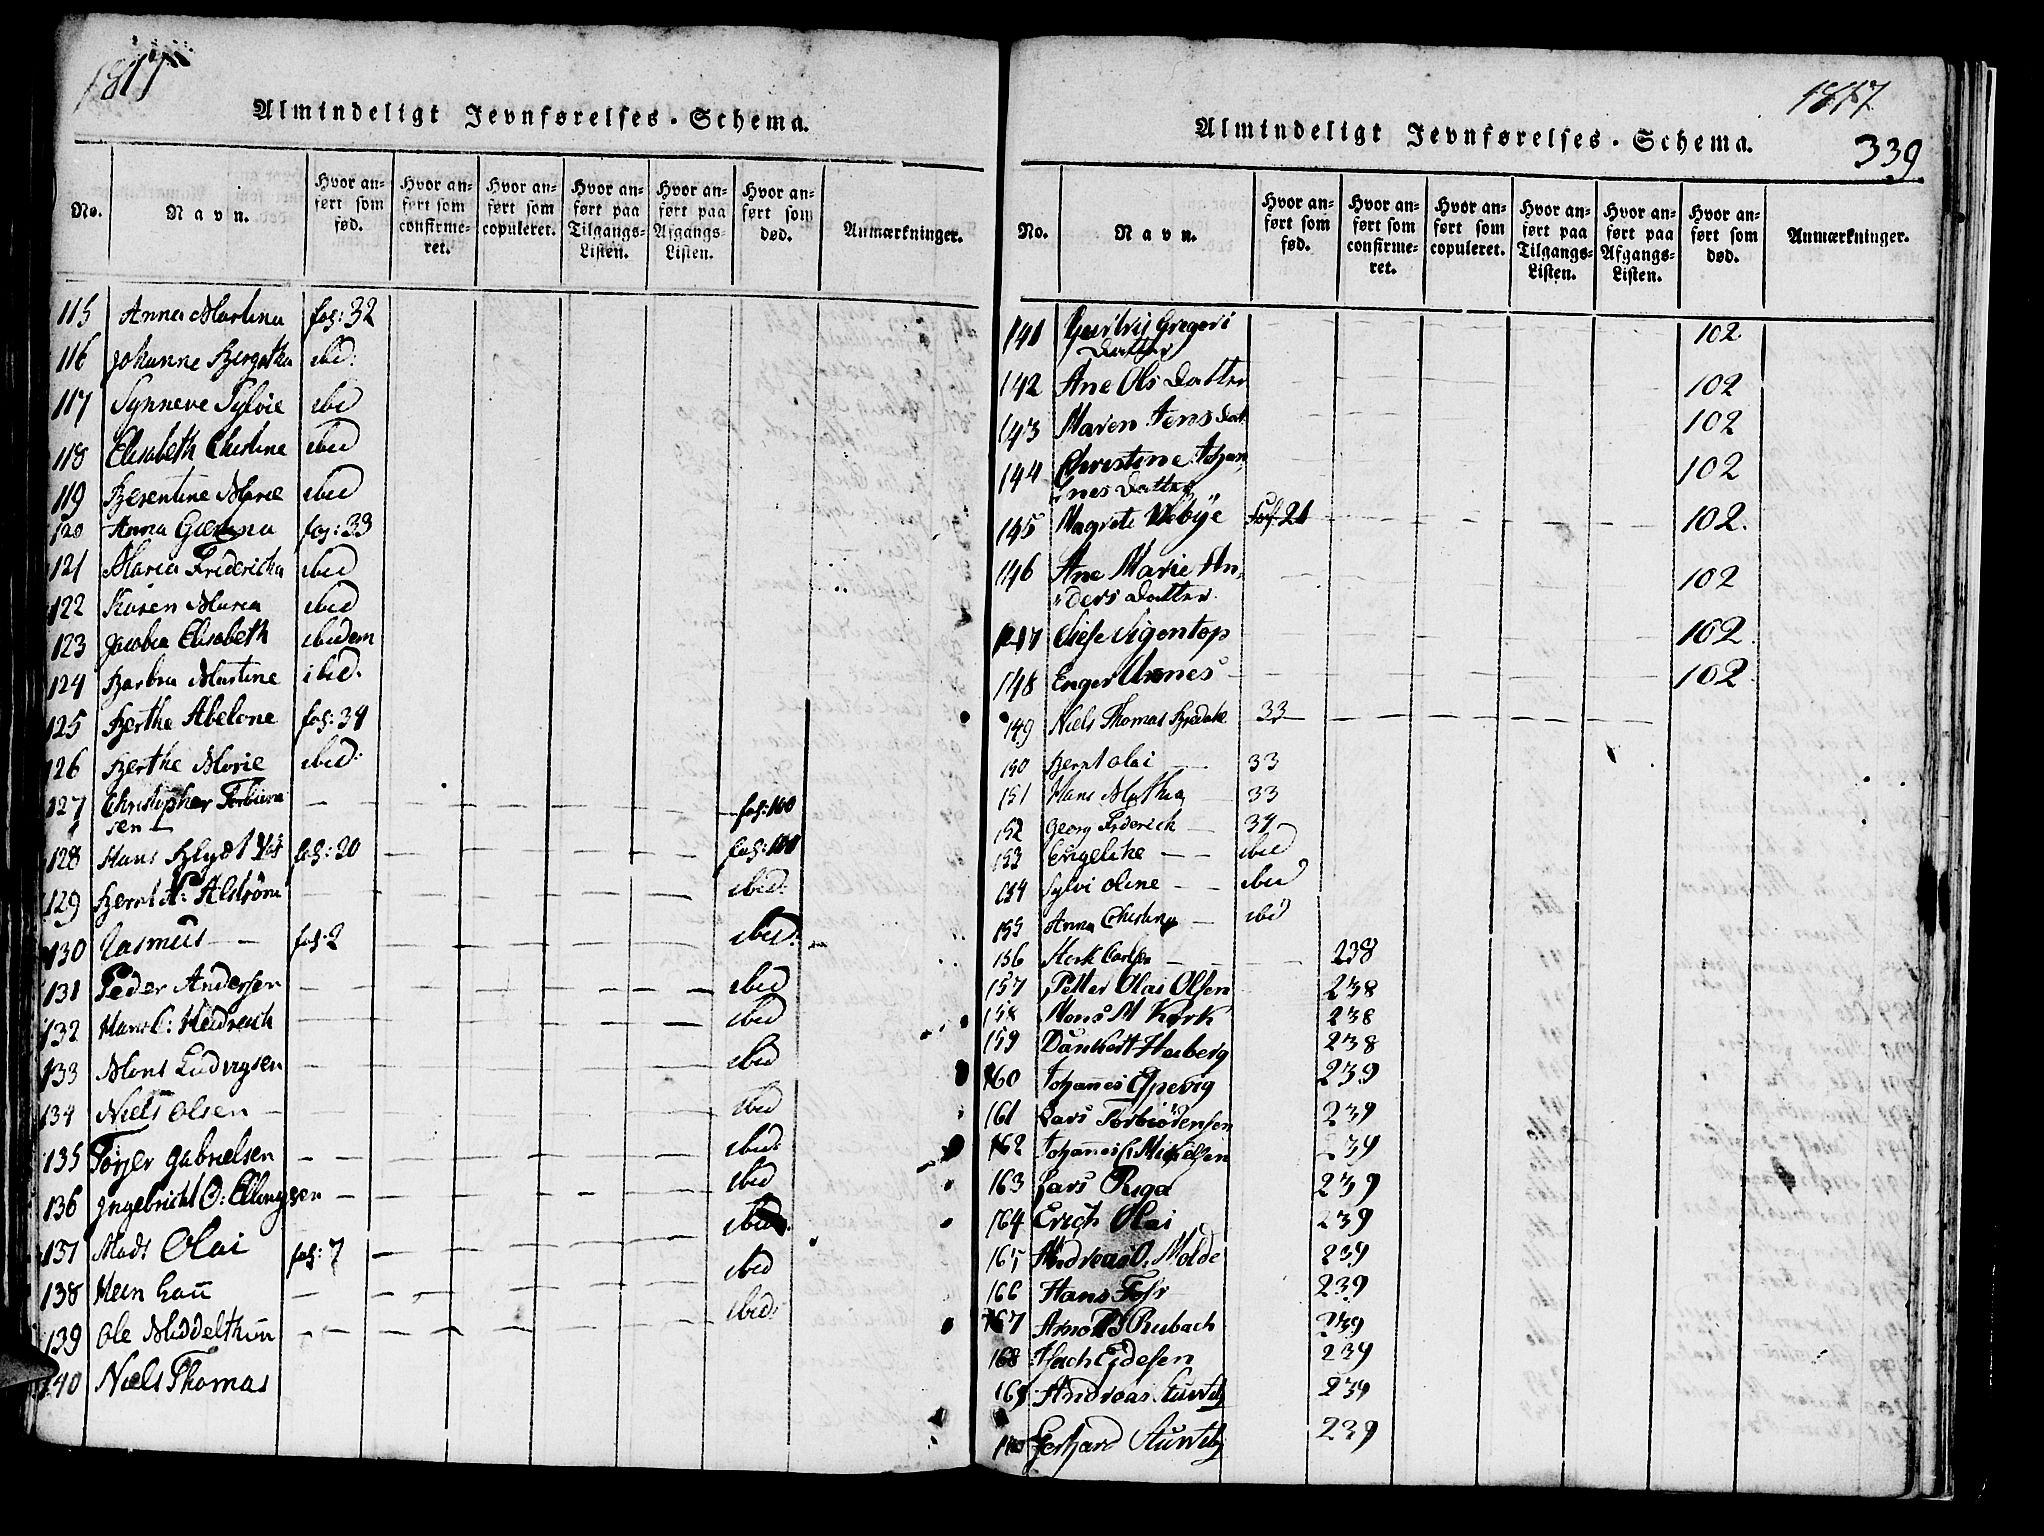 1817
Almindeligt Jevnførelses-Schema.
No. Navn. Hvor anført som fød. Hvor anført som confirmeret. Hvor anført som copuleret. Hvor anført paa Tilgangs-Listen. Hvor anført paa Afgangs-Listen. Hvor anført som død. Anmærkninger.
115 Anna Martina fol: 32
116 Johanne Bergitha ibid:
117 Synneve Sylvie ibid
118 Elisabeth Christine ibid
119 Berentine Marie ibid
120 Anna fol: 33
121 Maria Fredericka ibid
122 Karen Maria ibid
123 Jacobia Elisabeth ibidem
124 Barbra Martine ibid.
125 Berthe Abelone fol: 34
126 Berthe Marie ibid:
127 Christopher Torbiörn
sen — fol: 100
128 Hans Blydt fol: 20 — fol: 101
129 Bernt Alström — ibid:
130 Rasmus — fol: 2 — ibid:
131 Peder Andersen — ibid
132 Hans C: Heidreich — ibid
133 Mons Ludvigsen — ibid
134 Niels Olsen — ibid
135 Törjer Gabrielsen — ibid:
136 Ingebricht O: Ellingsen — ibid
137 Mads Olai fol: 7 — ibid.
138 — ibid
139 Ole Middelthun — ibid:
140 Niels Thomas
1817
339
Almindeligt Jevnførelses-Schema.
No. Navn. Hvor anført som fød. Hvor anført som confirmeret. Hvor anført som copuleret. Hvor anført paa Tilgangs-Listen. Hvor anført paa Afgangs-Listen. Hvor anført som død. Anmærkninger.
141 Giertrij Gregori
Datter — 102
142 Ane Ols Datter — 102
143 Maren Jens Dat — 102
144 Christine Johan
nes Datter — 102
145 Magrete Webÿe fol: 21 — 102.
146 Ane Marie An
ders Datter — 102
147 — 102.
148 Enger Urnes — 102.
149 Niels Thomas 33
150 Bernt Olai — 33
151 Hans Mathia 33
152 Georg Frderich — 34
153 Engelche — ibid
154 Sylvi Oline — ibid
155 Anna Christina — ibid
156 — 238
157 Petter Olai Olsen 238
158 Mons M Kirk 238
159 Danckert Heiberg 238
160 Johannes Espevig 239
161 Lars Torbiörensen 239
162 Johannes C Mickelsen 239
163 Lars Riga 239
164 Erich Olai 239
165 Andreas O. Molde 239
166 Hans Foss 239
167 Arnold Rusbach 239
168 239
169 Andreas 239
170 Gerhard 239